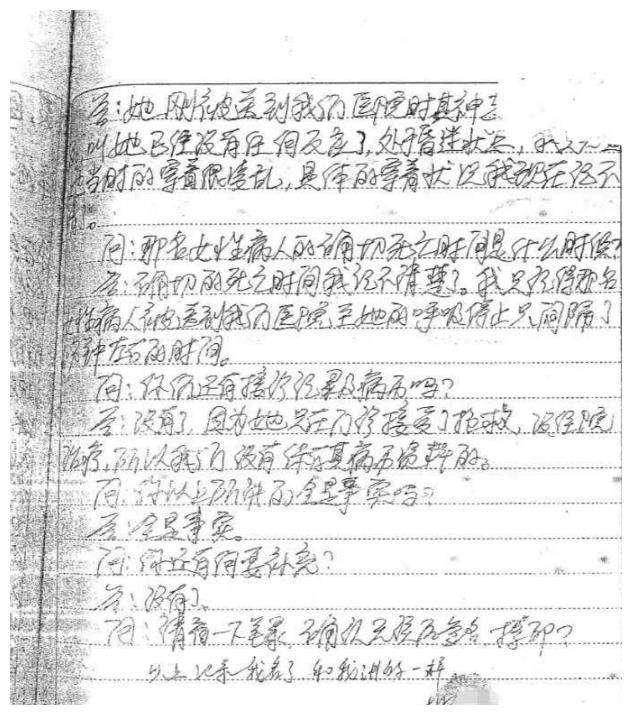 答:她刚被送到我们医院时其神志
叫她已经没有任何反应了,处于昏迷状态,
她当时的穿着很凌乱,具体的穿着状况我现在记不
问:那名女性病人的确切死亡时间是什么时候?
答:确切的死亡时间我记不清楚了。我只记得那名
女性病人被送到我们医院至她的呼吸停止只间隔了
分钟左右的时间。
问:你们还有接诊记录及病历吗?
答:没有了,因为她只在门诊接受了抢救,没住院
治疗,所以我们没有保存其病历资料的。
问:你以上所讲的全是事实吗?
答:全是事实。
问:你还有何要补充?
答:没有了。
问:请看一下笔录,确认无误后签名、捺印?
以上记录我看了和我讲的一样